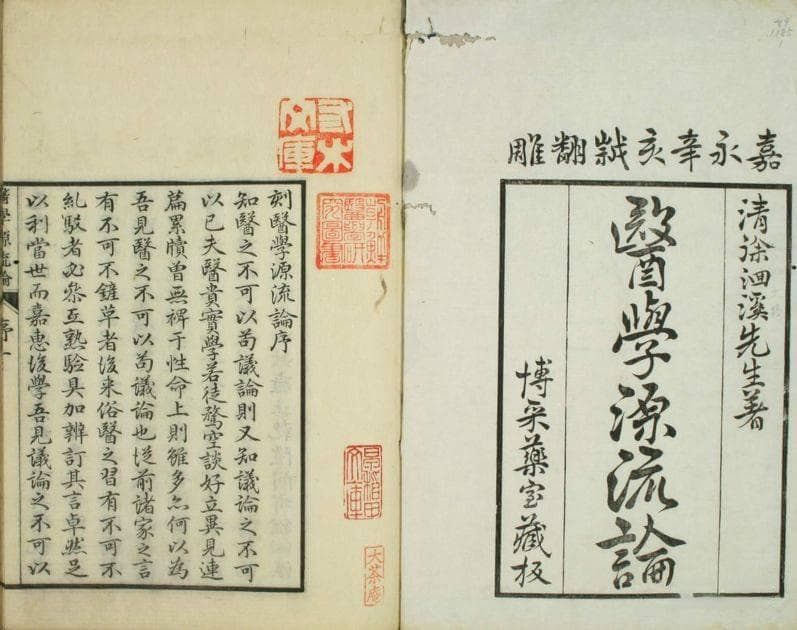 嘉永辛亥翻雕
清徐洄溪先生著
醫學源流論
博采藥室藏板
刻醫學源流論序
知醫之不可以苟議論則又知議論之不可
以已夫醫貴實學若徒騖空談好立異見連
篇累牘曽無裨于性命上則雖多亦何以為
吾見醫之不可以苟議論也從前諸家之言
有不可不鏟草者後来俗醫之習有不可不
糺駁者必叅互熟驗具加辨訂其言卓然足
以利當世而嘉惠後學吾見議論之不可以
醫學源流論
序一
大茶庵